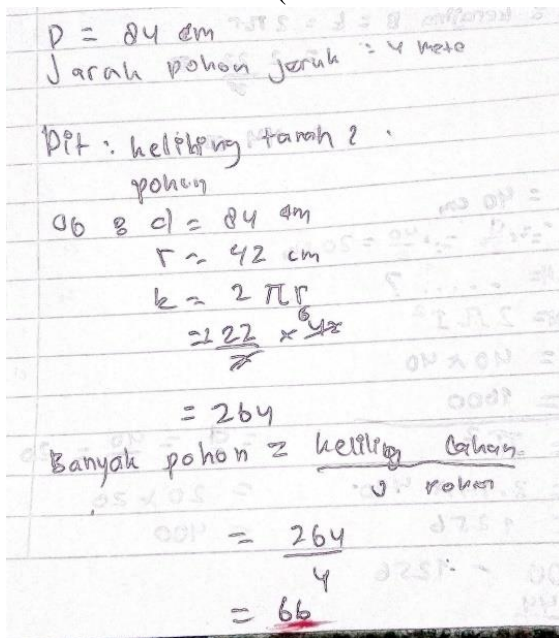 D = 84 cm
Jarak pohon jeruk = 4 mete
Dit : keliling tanah ?
pohon
d = 84 cm
r = 42 cm
k = 2 πr
= 2 22/7 × 42 6
= 264
Banyak pohon = keliling lahan
J pohon
= 264
4
= 66